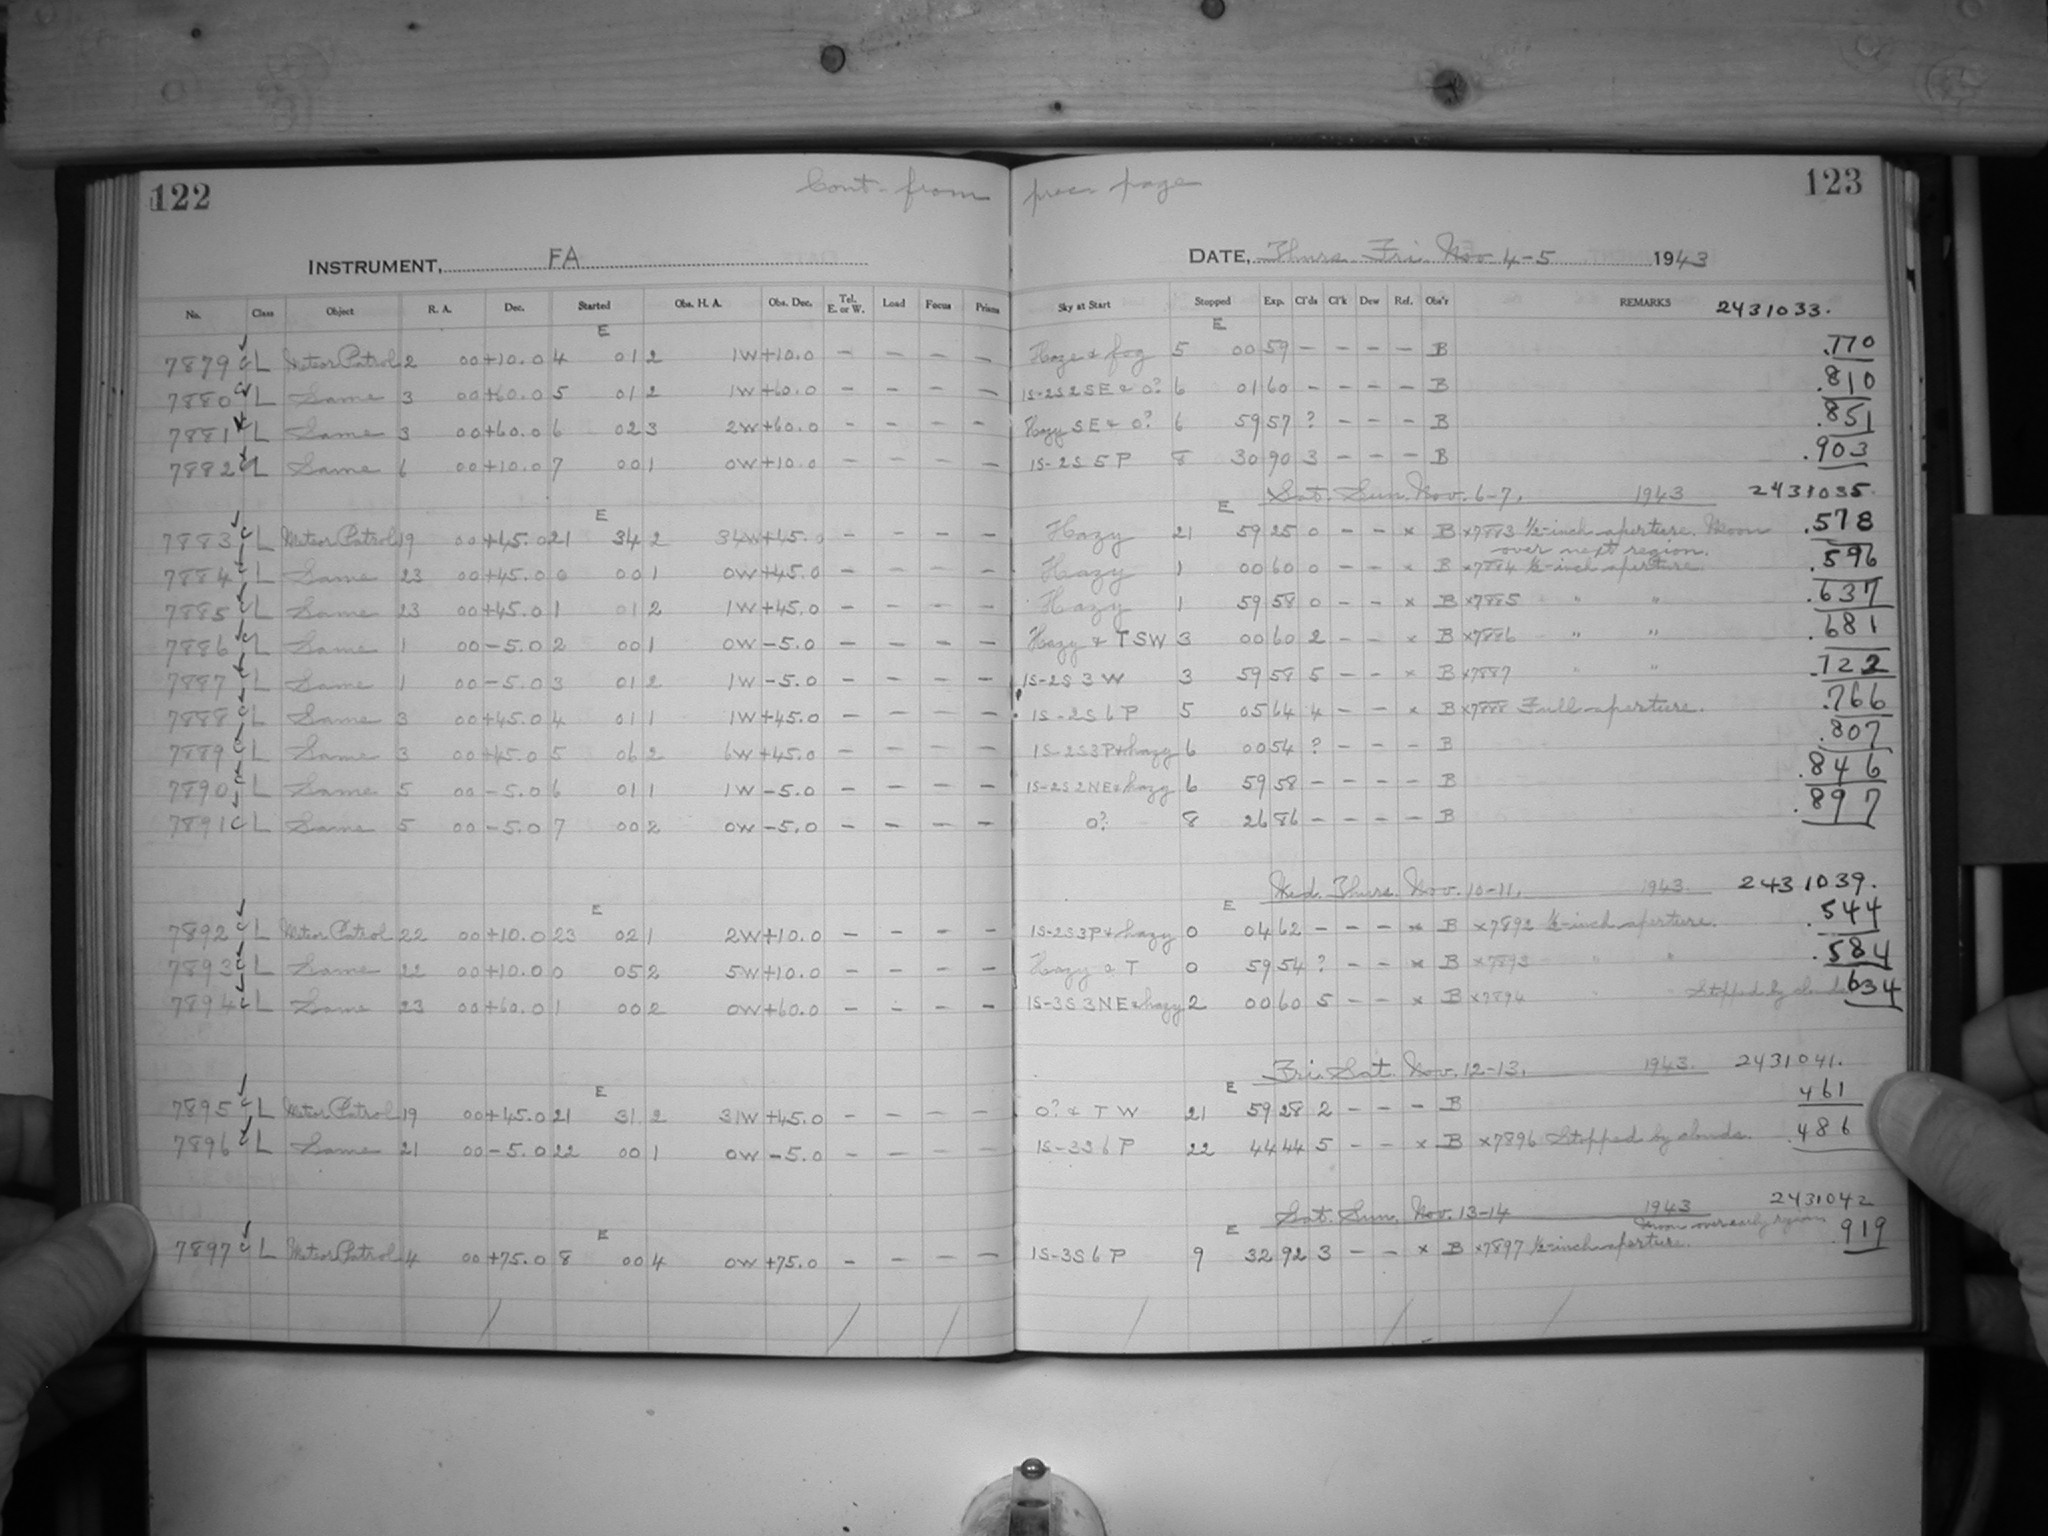 122 Cont. from prec. page 123
INSTRUMENT, FA DATE, Thurs. Fri. Nov 4-5 1943
No. Class Object R. A. Dec. Started Obs. H. A. Obs. Dec. Tel. E. or W. Load Focus Prisms Sky at Start Stopped Exp. Cl'ds Cl'k Dew Ref. Obs'r REMARKS 2431033.
E E
7879 c L Meteor Patrol 2 00 +10.0 4 01 2 1W +10.0 – – – – Haze & fog 5 00 59 – – – – B .770
7880 c L Same 3 00 +60.0 5 01 2 1W +60.0 – – – – 1S-2S 2SE & 0? 6 01 60 – – – – B .810
7881 L Same 3 00 +60.0 6 02 3 2W +60.0 – – – – Hazy SE & 0? 6 59 57 ? – – – B .851
7882 c L Same 6 00 +10.0 7 00 1 0W +10.0 – – – – 1S-2S 5P 8 30 90 3 – – – B .903
E E Sat. Sun. Nov. 6-7, 1943 2431035.
7883 c L Meteor Patrol 19 00 +45.0 21 34 2 34W +45.0 – – – – Hazy 21 59 25 0 – – x B x7883 ½-inch aperture. Moon over next region. .578
7884 c L Same 23 00 +45.0 0 00 1 0W +45.0 – – – – Hazy 1 00 60 0 – – x B x7884 ½-inch aperture. .596
7885 c L Same 23 00 +45.0 1 01 2 1W +45.0 – – – – Hazy 1 59 58 0 – – x B x7885 " " .637
7886 c L Same 1 00 -5.0 2 00 1 0W -5.0 – – – – Hazy & TSW 3 00 60 2 – – x B x7886 " " .681
7887 c L Same 1 00 -5.0 3 01 2 1W -5.0 – – – – 1S-2S 3W 3 59 58 5 – – x B x7887 " " .722
7888 c L Same 3 00 +45.0 4 01 1 1W +45.0 – – – – 1S-2S 6P 5 05 64 4 – – x B x7888 Full aperture. .766
7889 c L Same 3 00 +45.0 5 06 2 6W +45.0 – – – – 1S-2S 3P & hazy 6 00 54 ? – – – B .807
7890 c L Same 5 00 -5.0 6 01 1 1W -5.0 – – – – 1S-2S 2NE & hazy 6 59 58 – – – – B .846
7891 c L Same 5 00 -5.0 7 00 2 0W -5.0 – – – – 0? 8 26 86 – – – – B .897
E E Wed. Thurs. Nov. 10-11, 1943. 2431039.
7892 c L Meteor Patrol 22 00 +10.0 23 02 1 2W +10.0 – – – – 1S-2S 3P & hazy 0 04 62 – – – x B x7892 ½-inch aperture. .544
7893 c L Same 22 00 +10.0 0 05 2 5W +10.0 – – – – Hazy & T 0 59 54 ? – – x B x7893 " " .584
7894 c L Same 23 00 +60.0 1 00 2 0W +60.0 – – – – 1S-3S 3NE & hazy 2 00 60 5 – – x B x7894 " " Stopped by clouds 634
E E Fri. Sat. Nov. 12-13, 1943. 2431041.
7895 c L Meteor Patrol 19 00 +45.0 21 31 2 31W +45.0 – – – – 0? & T W 21 59 28 2 – – – B 461
7896 c L Same 21 00 -5.0 22 00 1 0W -5.0 – – – – 1S-3S 6P 22 44 44 5 – – x B x7896 Stopped by clouds. .486
E E Sat. Sun. Nov. 13-14 1943 2431042
7897 c L Meteor Patrol 4 00 +75.0 8 00 4 0W +75.0 – – – – 1S-3S 6P 9 32 92 3 – – x B x7897 ½-inch aperture. Moon over early region .919